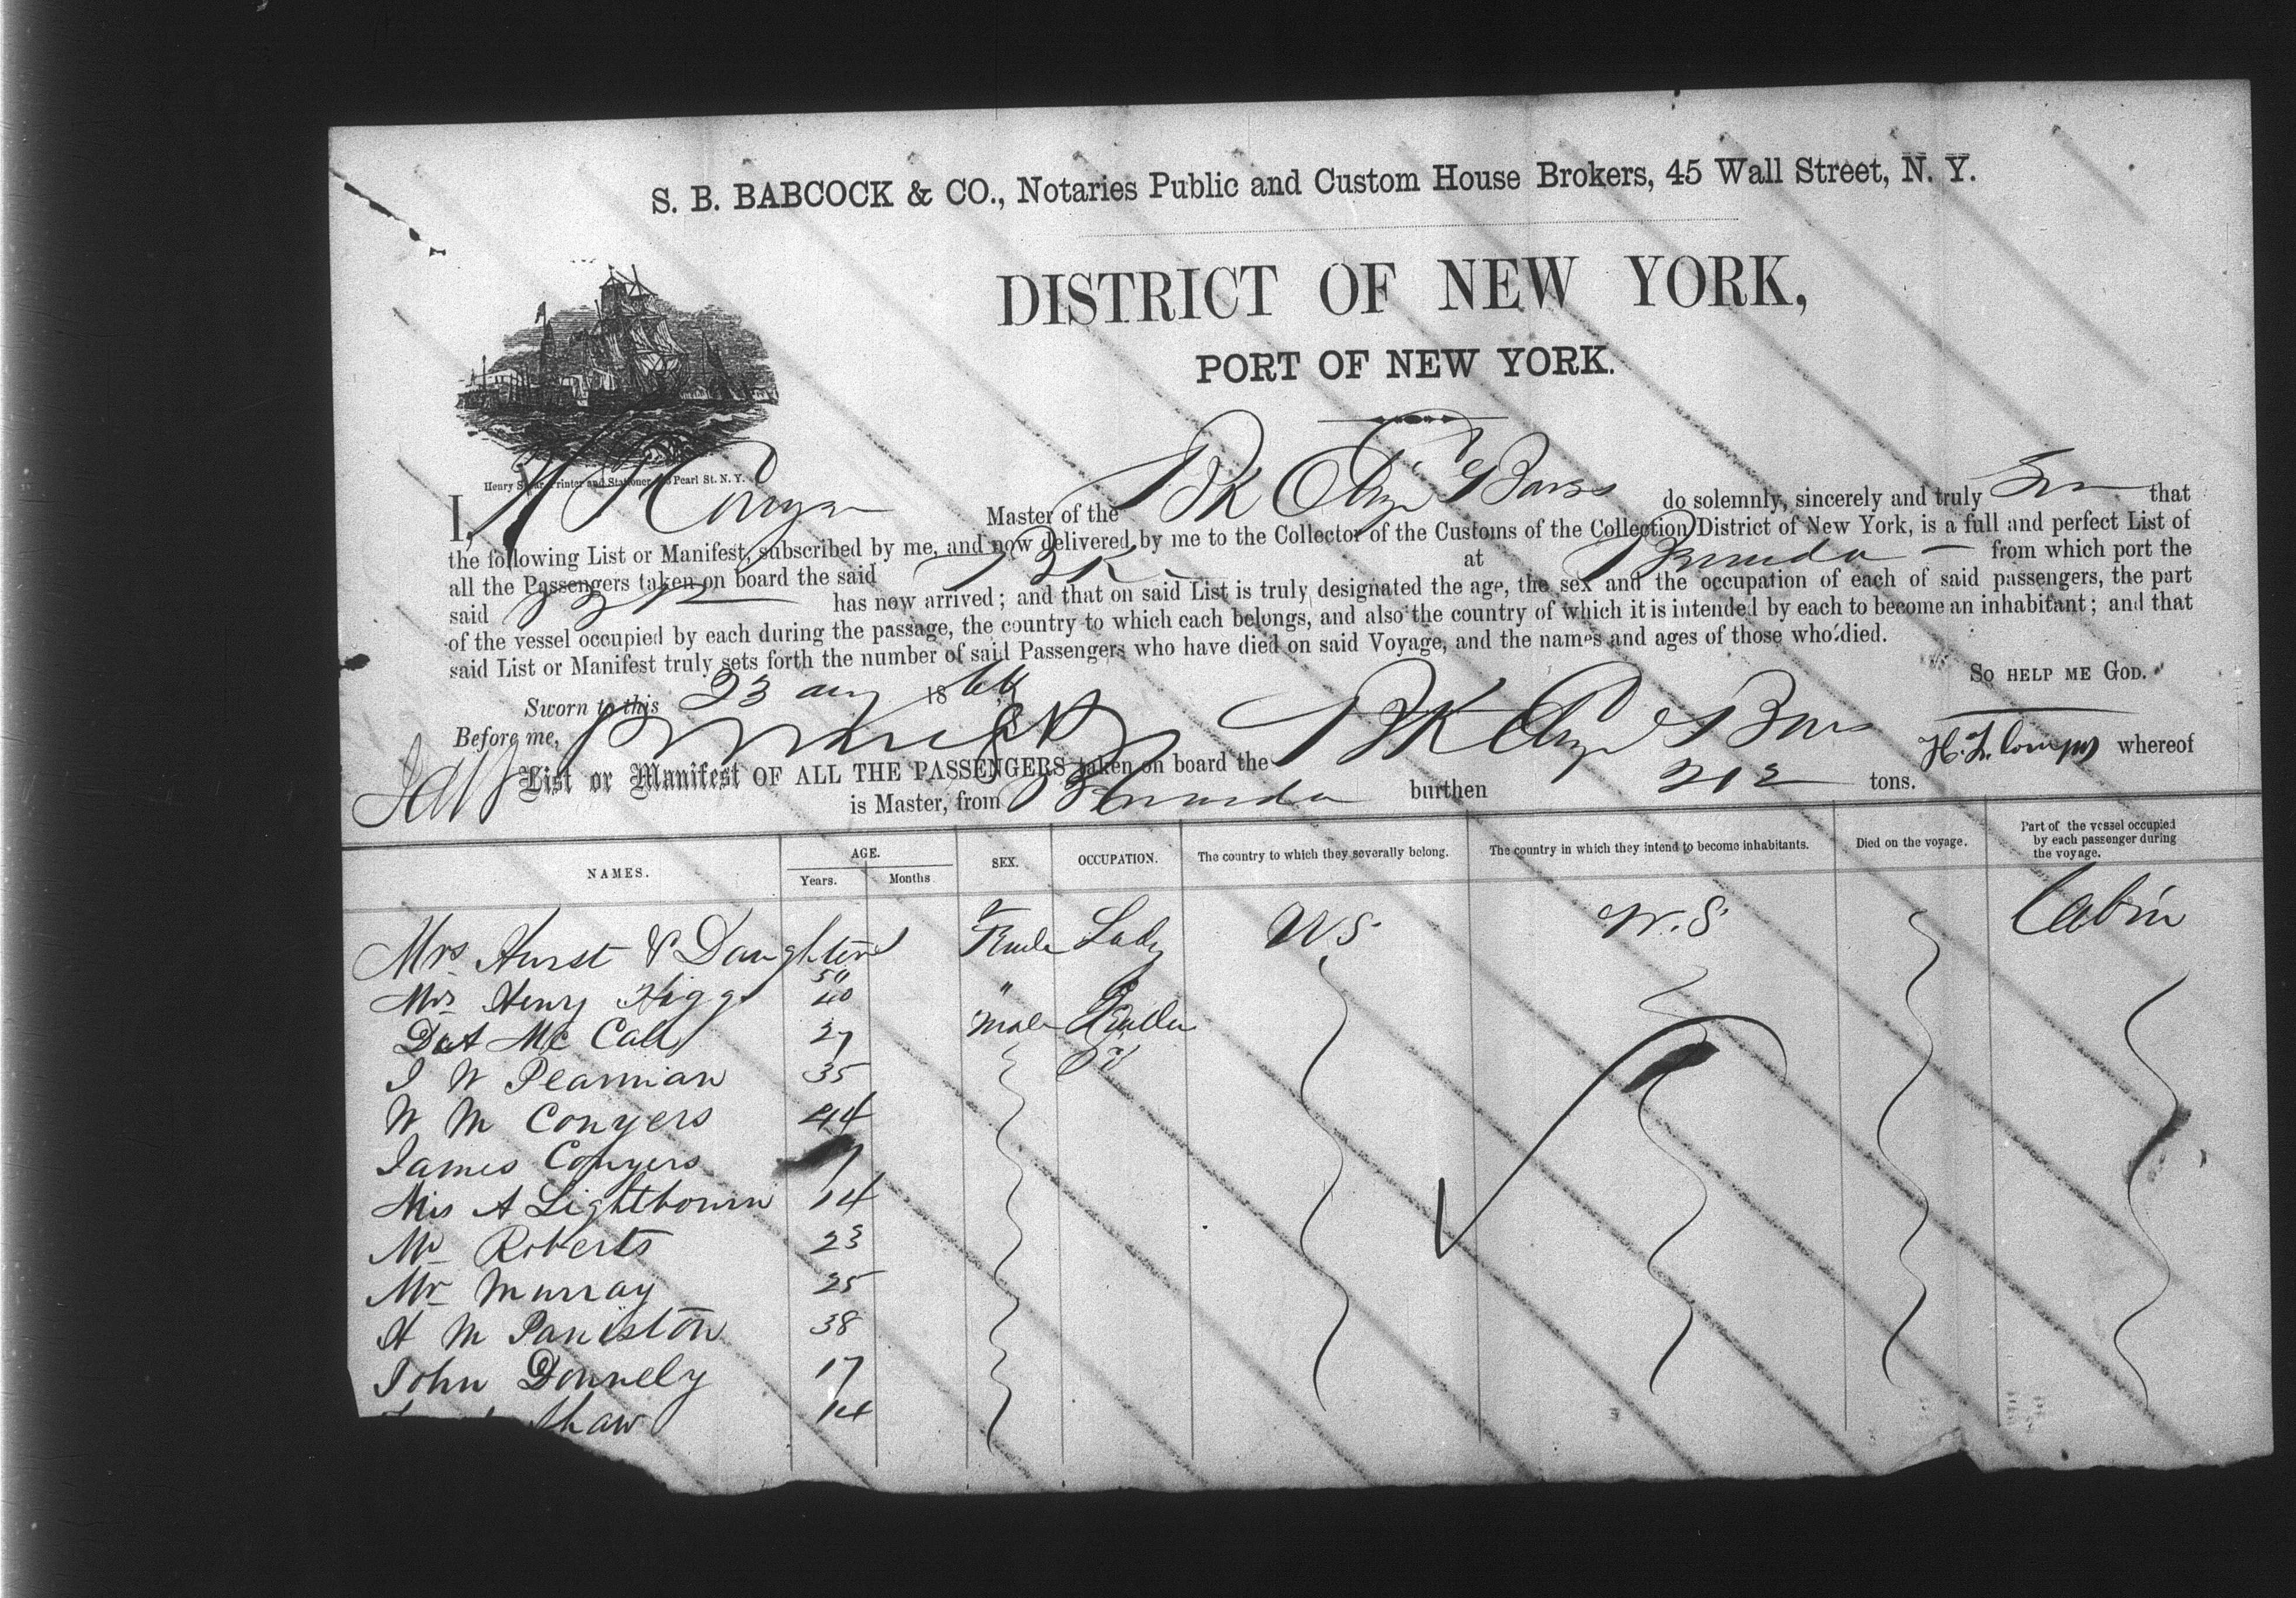 S. B. BABCOCK & CO., Notaries Public and Custom House Brokers, 45 Wall Street, N. Y.
DISTRICT OF NEW YORK,
PORT OF NEW YORK.
Henry Printer and Stationer Pearl St. N. Y.
I, Master of the Bk do solemnly, sincerely and truly that
the following List or Manifest, subscribed by me, and now delivered by me to the Collector of the Customs of the Collection District of New York, is a full and perfect List of
all the Passengers taken on board the said Bk at Bermuda from which port the
said Bk has now arrived; and that on said List is truly designated the age, the sex and the occupation of each of said passengers, the part
of the vessel occupied by each during the passage, the country to which each belongs, and also the country of which it is intended by each to become an inhabitant; and that
said List or Manifest truly sets forth the number of said Passengers who have died on said Voyage, and the names and ages of those who died.
So HELP ME GOD.
Sworn to this 23 Aug 1864
Before me,
List or Manifest OF ALL THE PASSENGERS taken on board the Bk whereof
is Master, from Bermuda burthen 212 tons.
NAMES. AGE. Years. Months SEX. OCCUPATION. The country to which they severally belong. The country in which they intend to become inhabitants. Died on the voyage. Part of the vessel occupied by each passenger during the voyage.
Mrs Hurst & Daughter Lady U.S. U.S. Cabin
Mrs Henry 40 "
Mc Call 27 Male
J W Pearman 35
W M Conyers 44
James Conyers
Mis A Lightbourn 14
Mr Roberts 23
Mr Murray 25
H M Paniston 38
John Donnely 17
Shaw 14